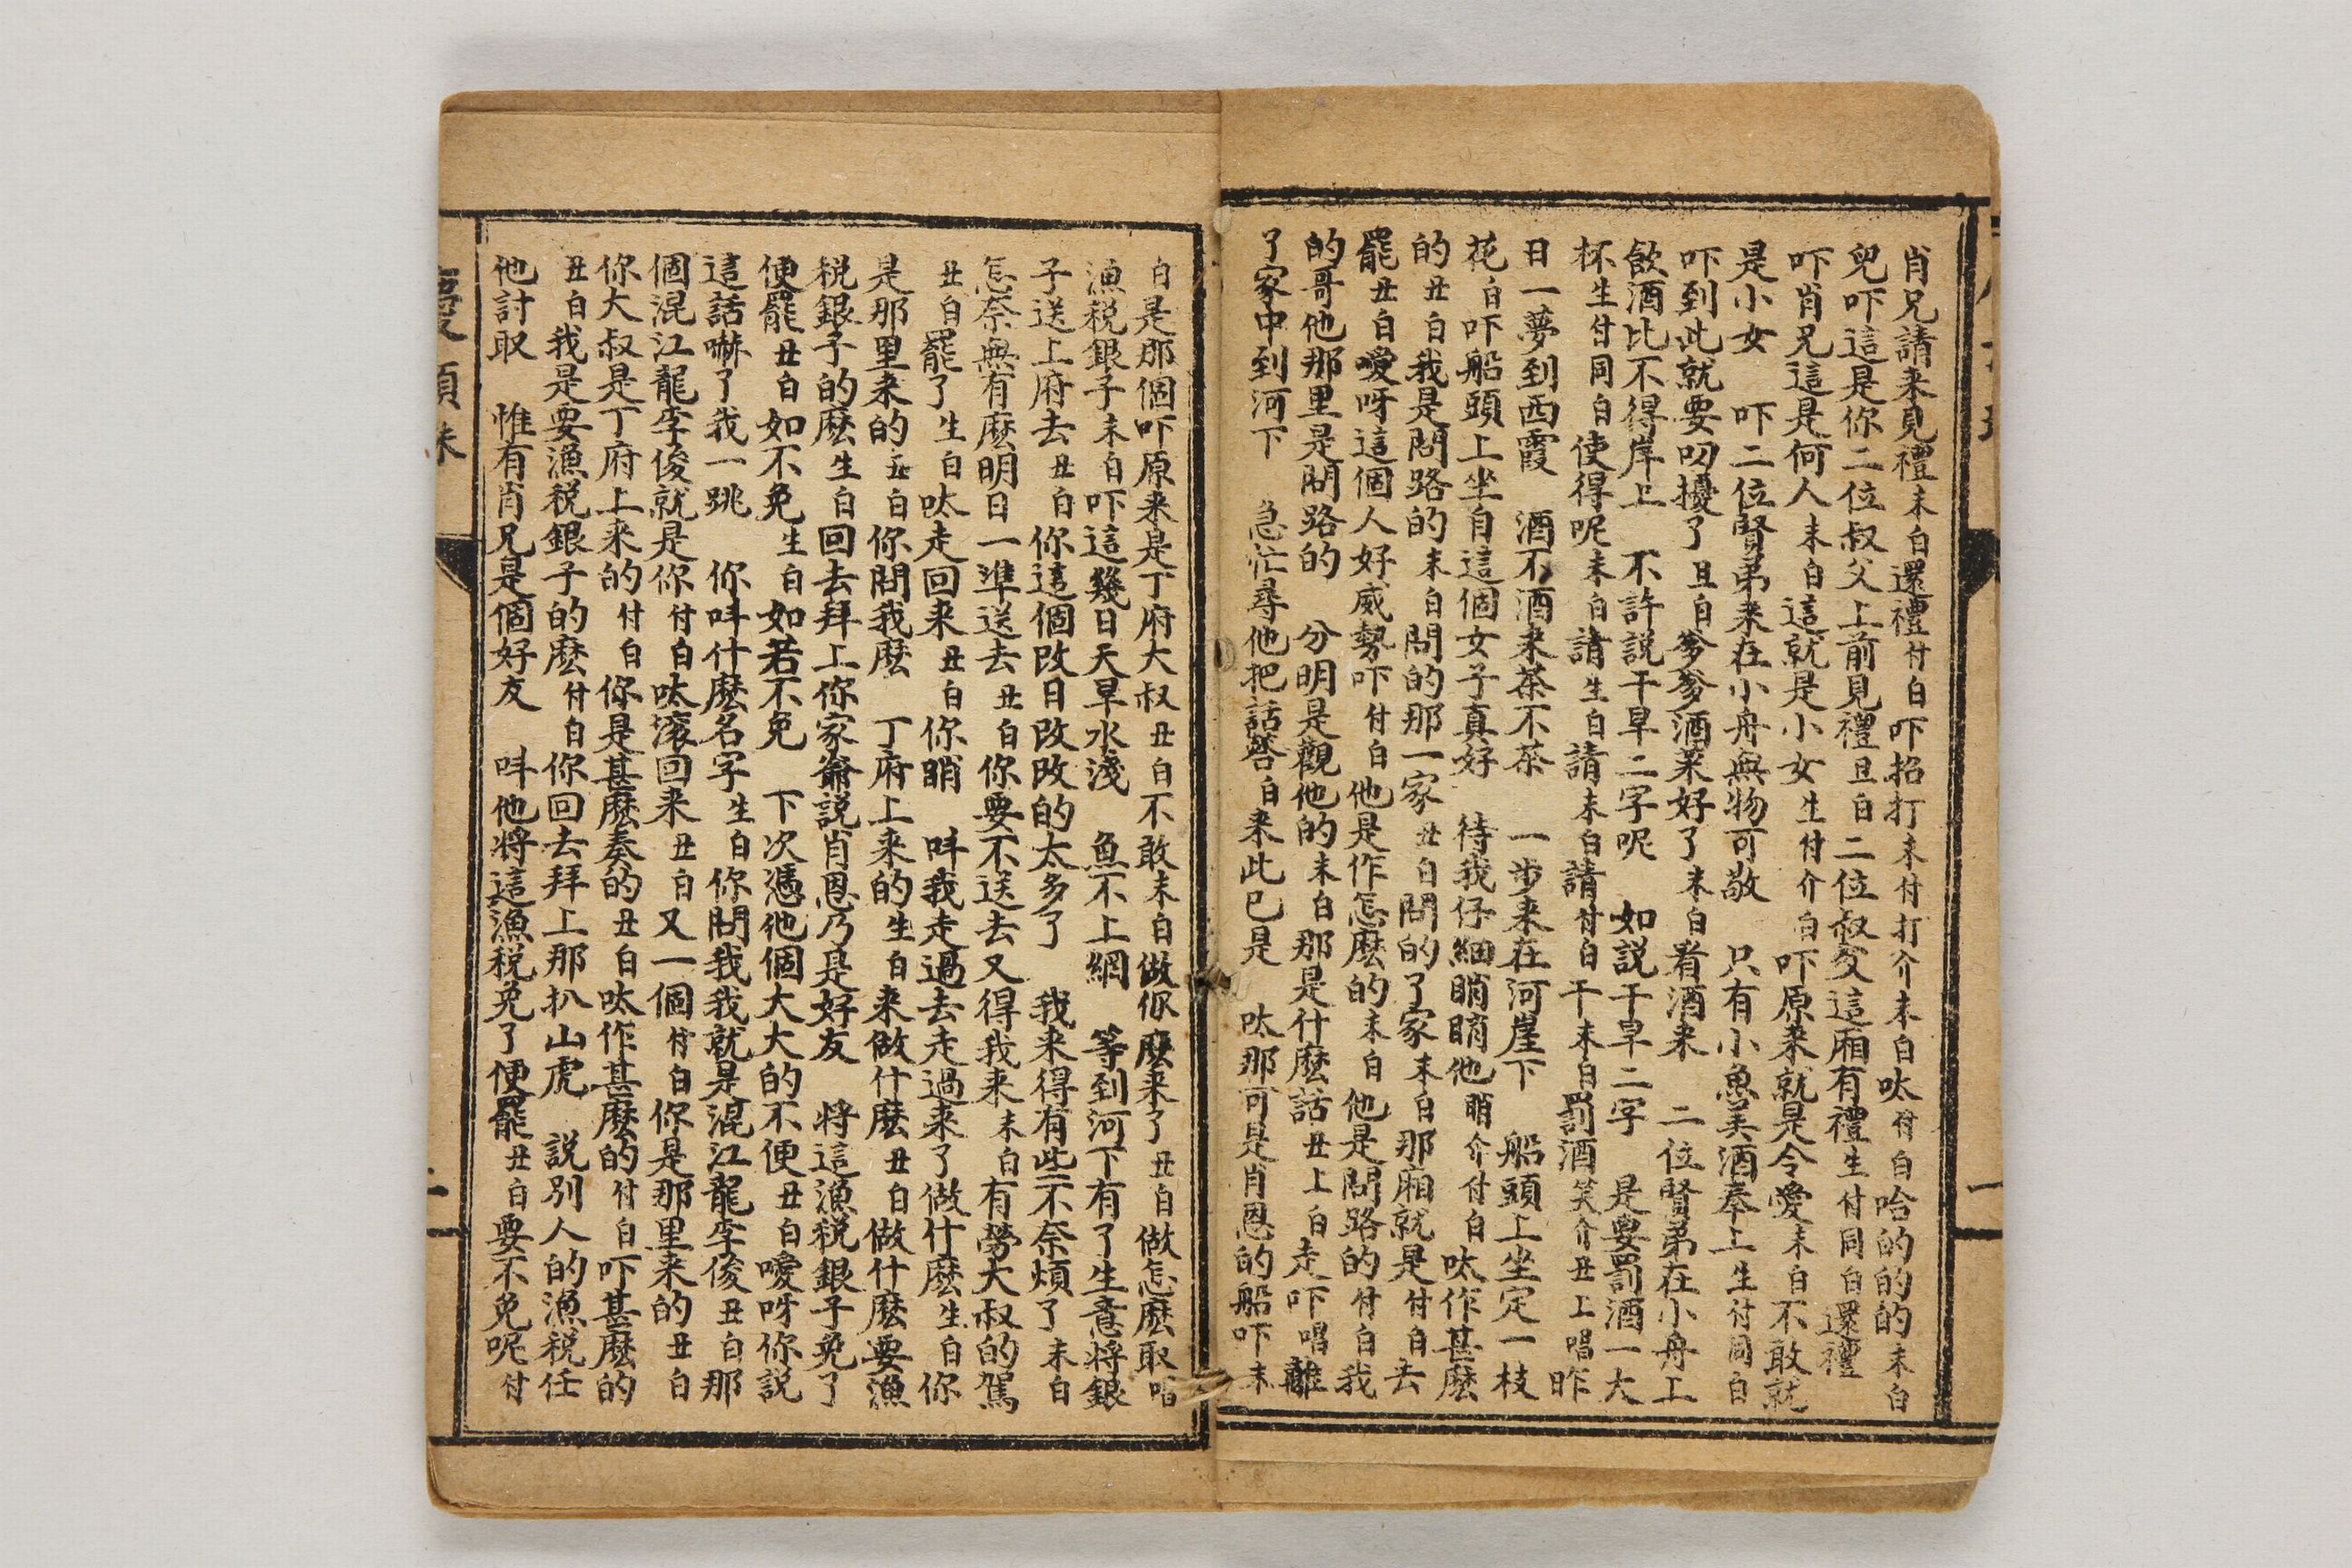 肖兄請来見禮末白還禮付白吓招打末付打介末白呔付白哈的的的末白
兒吓這是你二位叔父上前見禮旦白二位叔父這廂有禮生付同白還禮
吓肖兄這是何人末白這就是小女生付介白吓原来就是令愛末白不敢就
是小女 吓二位賢弟来在小舟無物可敬 只有小魚美酒奉上生付同白
吓到此就要叨擾了旦白爹爹酒菜好了末白看酒来 二位賢弟在小舟上
飲酒比不得岸上 不許説干旱二字呢 如説干旱二字 是要罰酒一大
杯生付同白使得呢末白請生白請末白請付白干末白罰酒笑介丑上唱昨
日一夢到西霞 酒不酒来茶不茶 一步来在河崖下 船頭上坐定一枝
花白吓船頭上坐自這個女子真好 待我仔細睄睄他睄介付白呔作甚麽
的丑白我是問路的末白問的那一家丑白問的了家末白那廂就是付白去
罷丑白噯呀這個人好威勢吓付白他是作怎麽的末白他是問路的付白我
的哥他那里是問路的 分明是觀他的末白那是什麽話丑上白走吓唱離
了家中到河下 急忙尋他把話答白来此已是 呔那可是肖恩的船吓末
白是那個吓原来是丁府大叔丑白不敢末白做你麽来了丑白做怎麽取唱
漁税銀子末白吓這幾日天旱水淺 魚不上網 等到河下有了生意將銀
子送上府去丑白你這個改日改改的太多了 我来得有些不奈煩了末白
怎奈無有麽明日一準送去丑白你要不送去又得我来末白有勞大叔的駕
丑白罷了生白呔走回来丑白你睄 呌我走過去走過来了做什麽生白你
是那里来的丑白你問我麽 丁府上来的生白来做什麽丑白做什麽要漁
税銀子的麽生白回去拜上你家爺説肖恩乃是好友 將這漁税銀子免了
便罷丑白如不免生白如若不免 下次憑他個大大的不便丑白噯呀你説
這話嚇了我一跳 你呌什麽名字生白你問我我就是混江龍李俊丑白那
個混江龍李俊就是你付白呔滚回来丑白又一個付白你是那里来的丑白
你大叔是丁府上来的付白你是甚麽奏的丑白呔作甚麽的付白吓甚麽的
丑白我是要漁税銀子的麽付白你回去拜上那扒山虎 説别人的漁税任
他討取 惟有肖兄是個好友 呌他將這漁税免了便罷丑白要不免呢付
慶頂珠
二
一